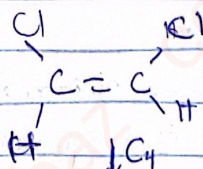 Cl Cl
C = C
H H
C4